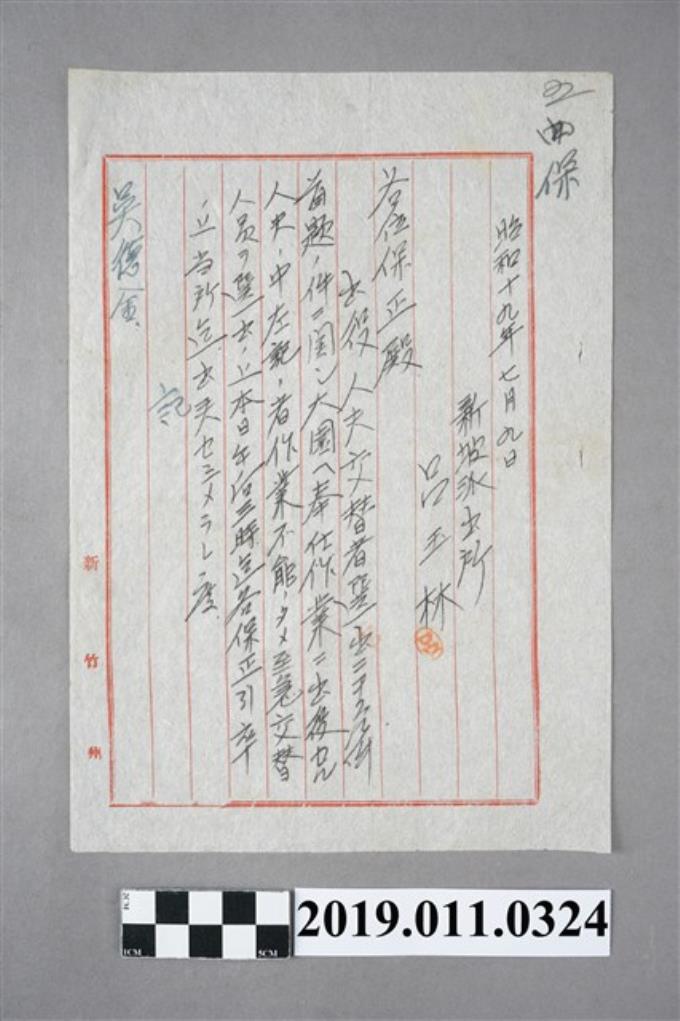 五両保
昭和十九年七月九日
新坡派出所
呂玉林
各位保正殿
出役人夫交替者選出ニ
首題ノ件ニ関シ大園ヘ奉仕作業ニ出役セル
人夫ノ中左記ノ者作業不能ノタメ至急交替
人员ヲ選出ノ上本日午后三時迄各保正引率
ノ上当所迄出头セシメラレ度
記
吳德金
新竹州
2019.011.0324
1CM
5CM